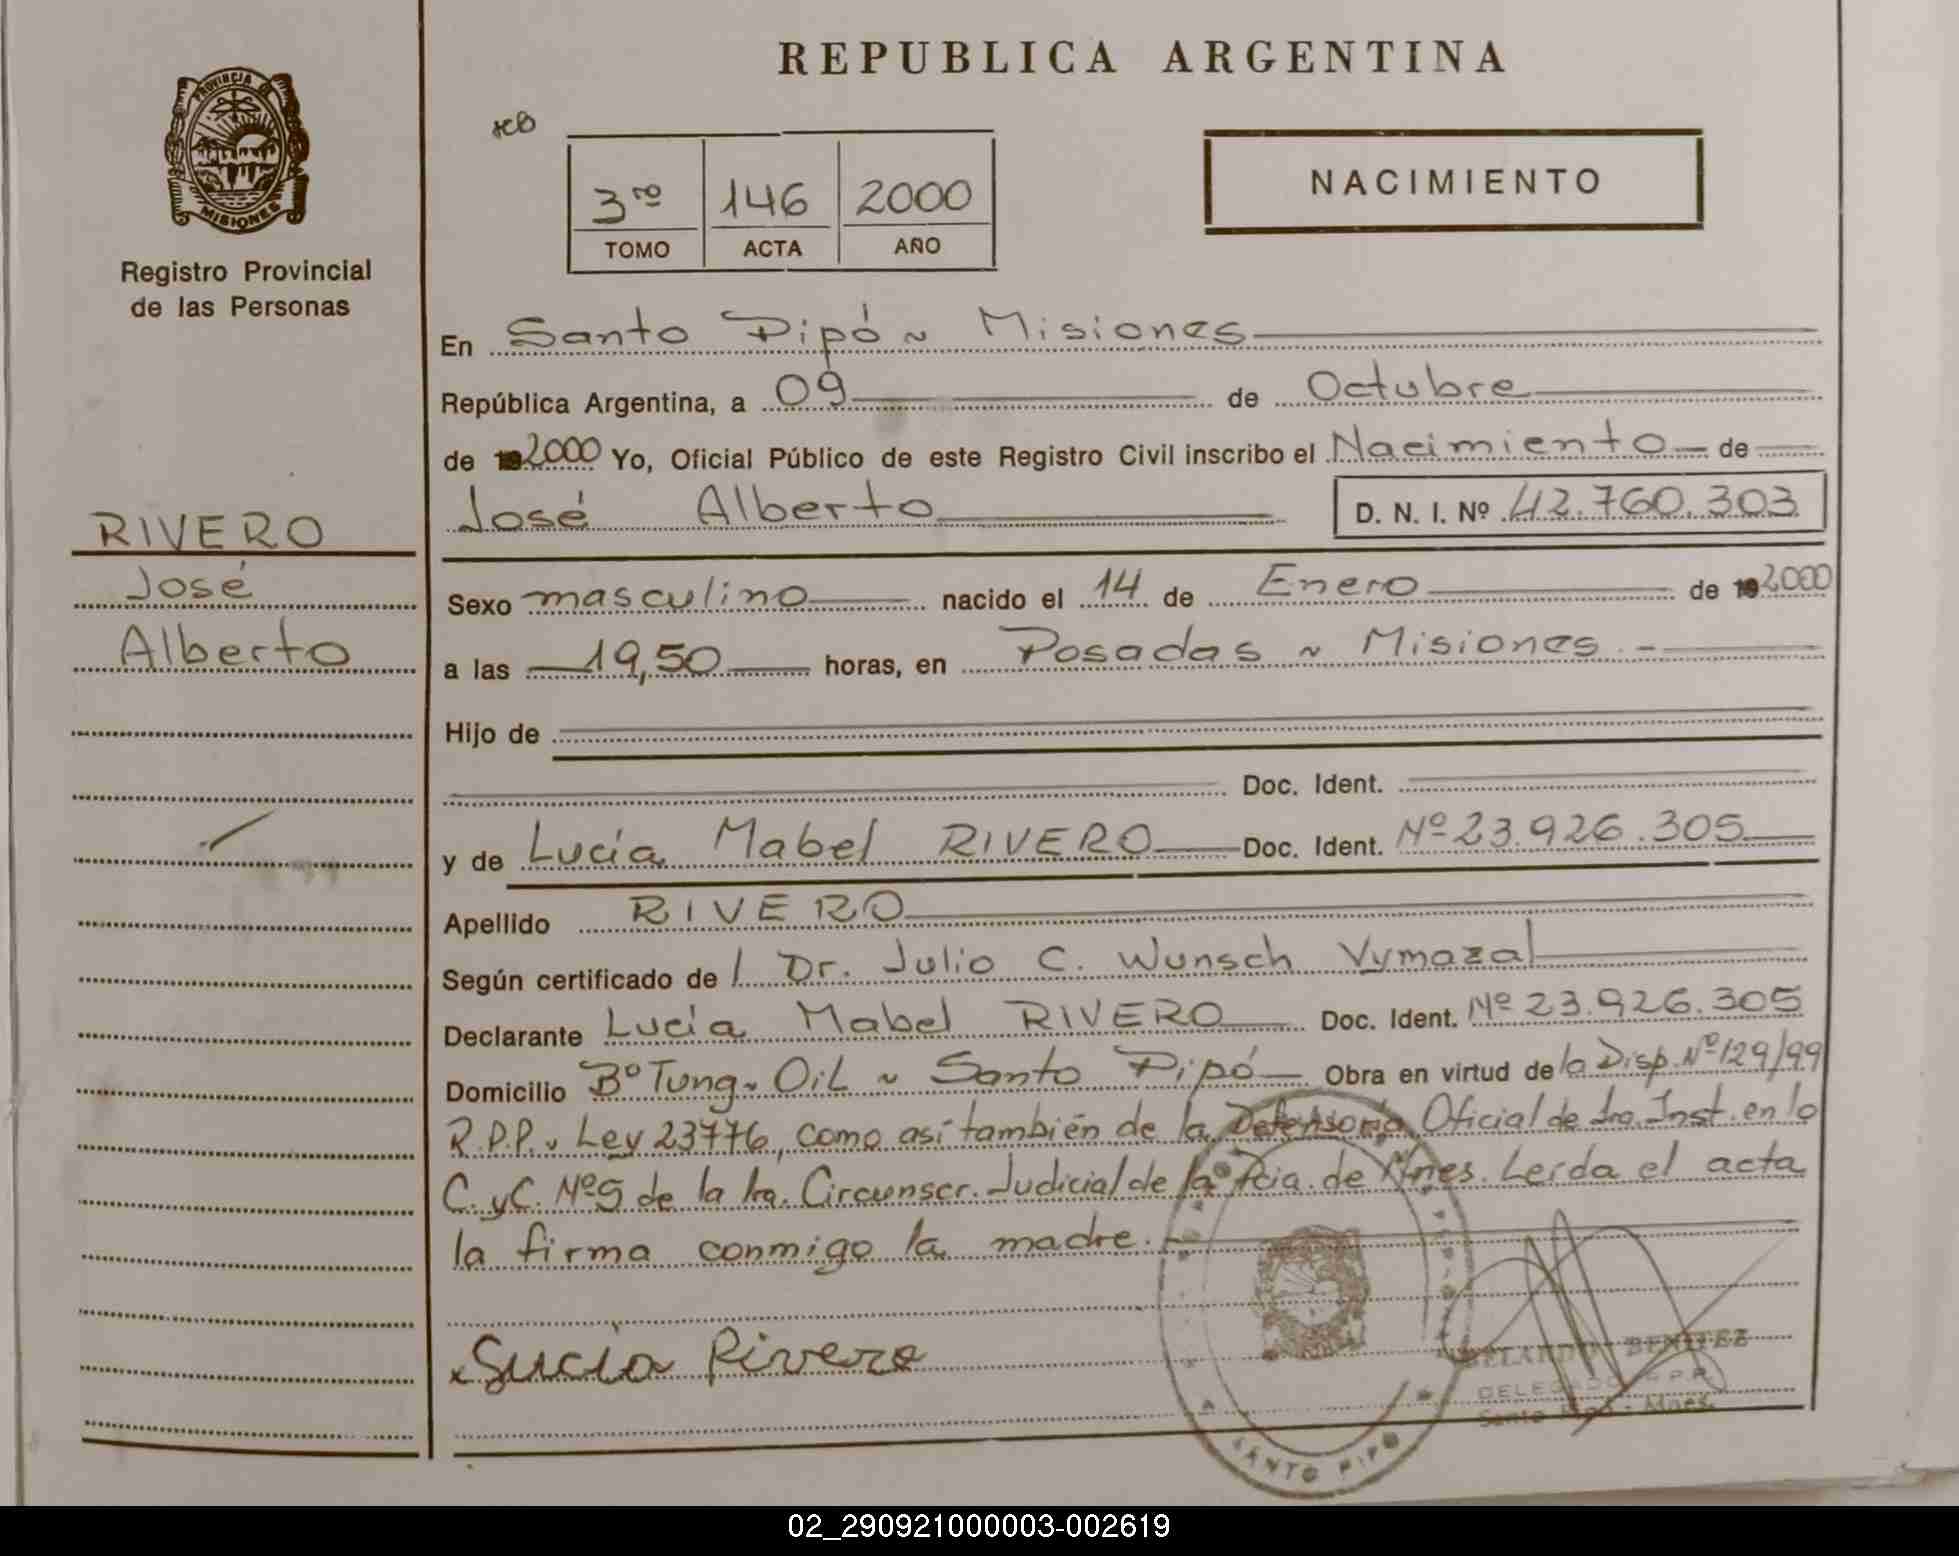 REPUBLICA ARGENTINA
PROVINCIA DE
MISIONES
Registro Provincial
de las Personas
3ro 146 2000
TOMO ACTA AÑO
NACIMIENTO
En Santo Pipó ~ Misiones
República Argentina, a 09 de Octubre
de 2000 Yo, Oficial Público de este Registro Civil inscribo el Nacimiento de
José Alberto D. N. I. Nº 42.760.303
RIVERO
José
Alberto
Sexo masculino nacido el 14 de Enero de 2000
a las 19,50 horas, en Posadas ~ Misiones.-
Hijo de
Doc. Ident.
y de Lucía Mabel RIVERO Doc. Ident. Nº 23.926.305
Apellido RIVERO
Según certificado de l Dr. Julio C. Wunsch Vymazal
Declarante Lucía Mabel RIVERO Doc. Ident. Nº 23.926.305
Domicilio Bº Tung~Oil ~ Santo Pipó Obra en virtud de la Disp. Nº 129/99
R.P.P. y Ley 23776, como así también de la Defensoría Oficial de 1ra. Inst. en lo
C. y C. Nº 5 de la 1ra. Circunscr. Judicial de la Pcia. de Mnes. Leída el acta
la firma conmigo la madre.
x Lucia Rivero
BENITEZ
DELEGADO R.P.P.
Santo Pipó - Mnes.
SANTO PIPO
02_290921000003-002619